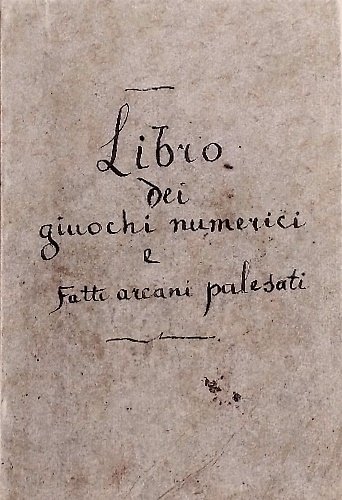 Libro
dei
giuochi numerici
e
Fatti arcani palesati